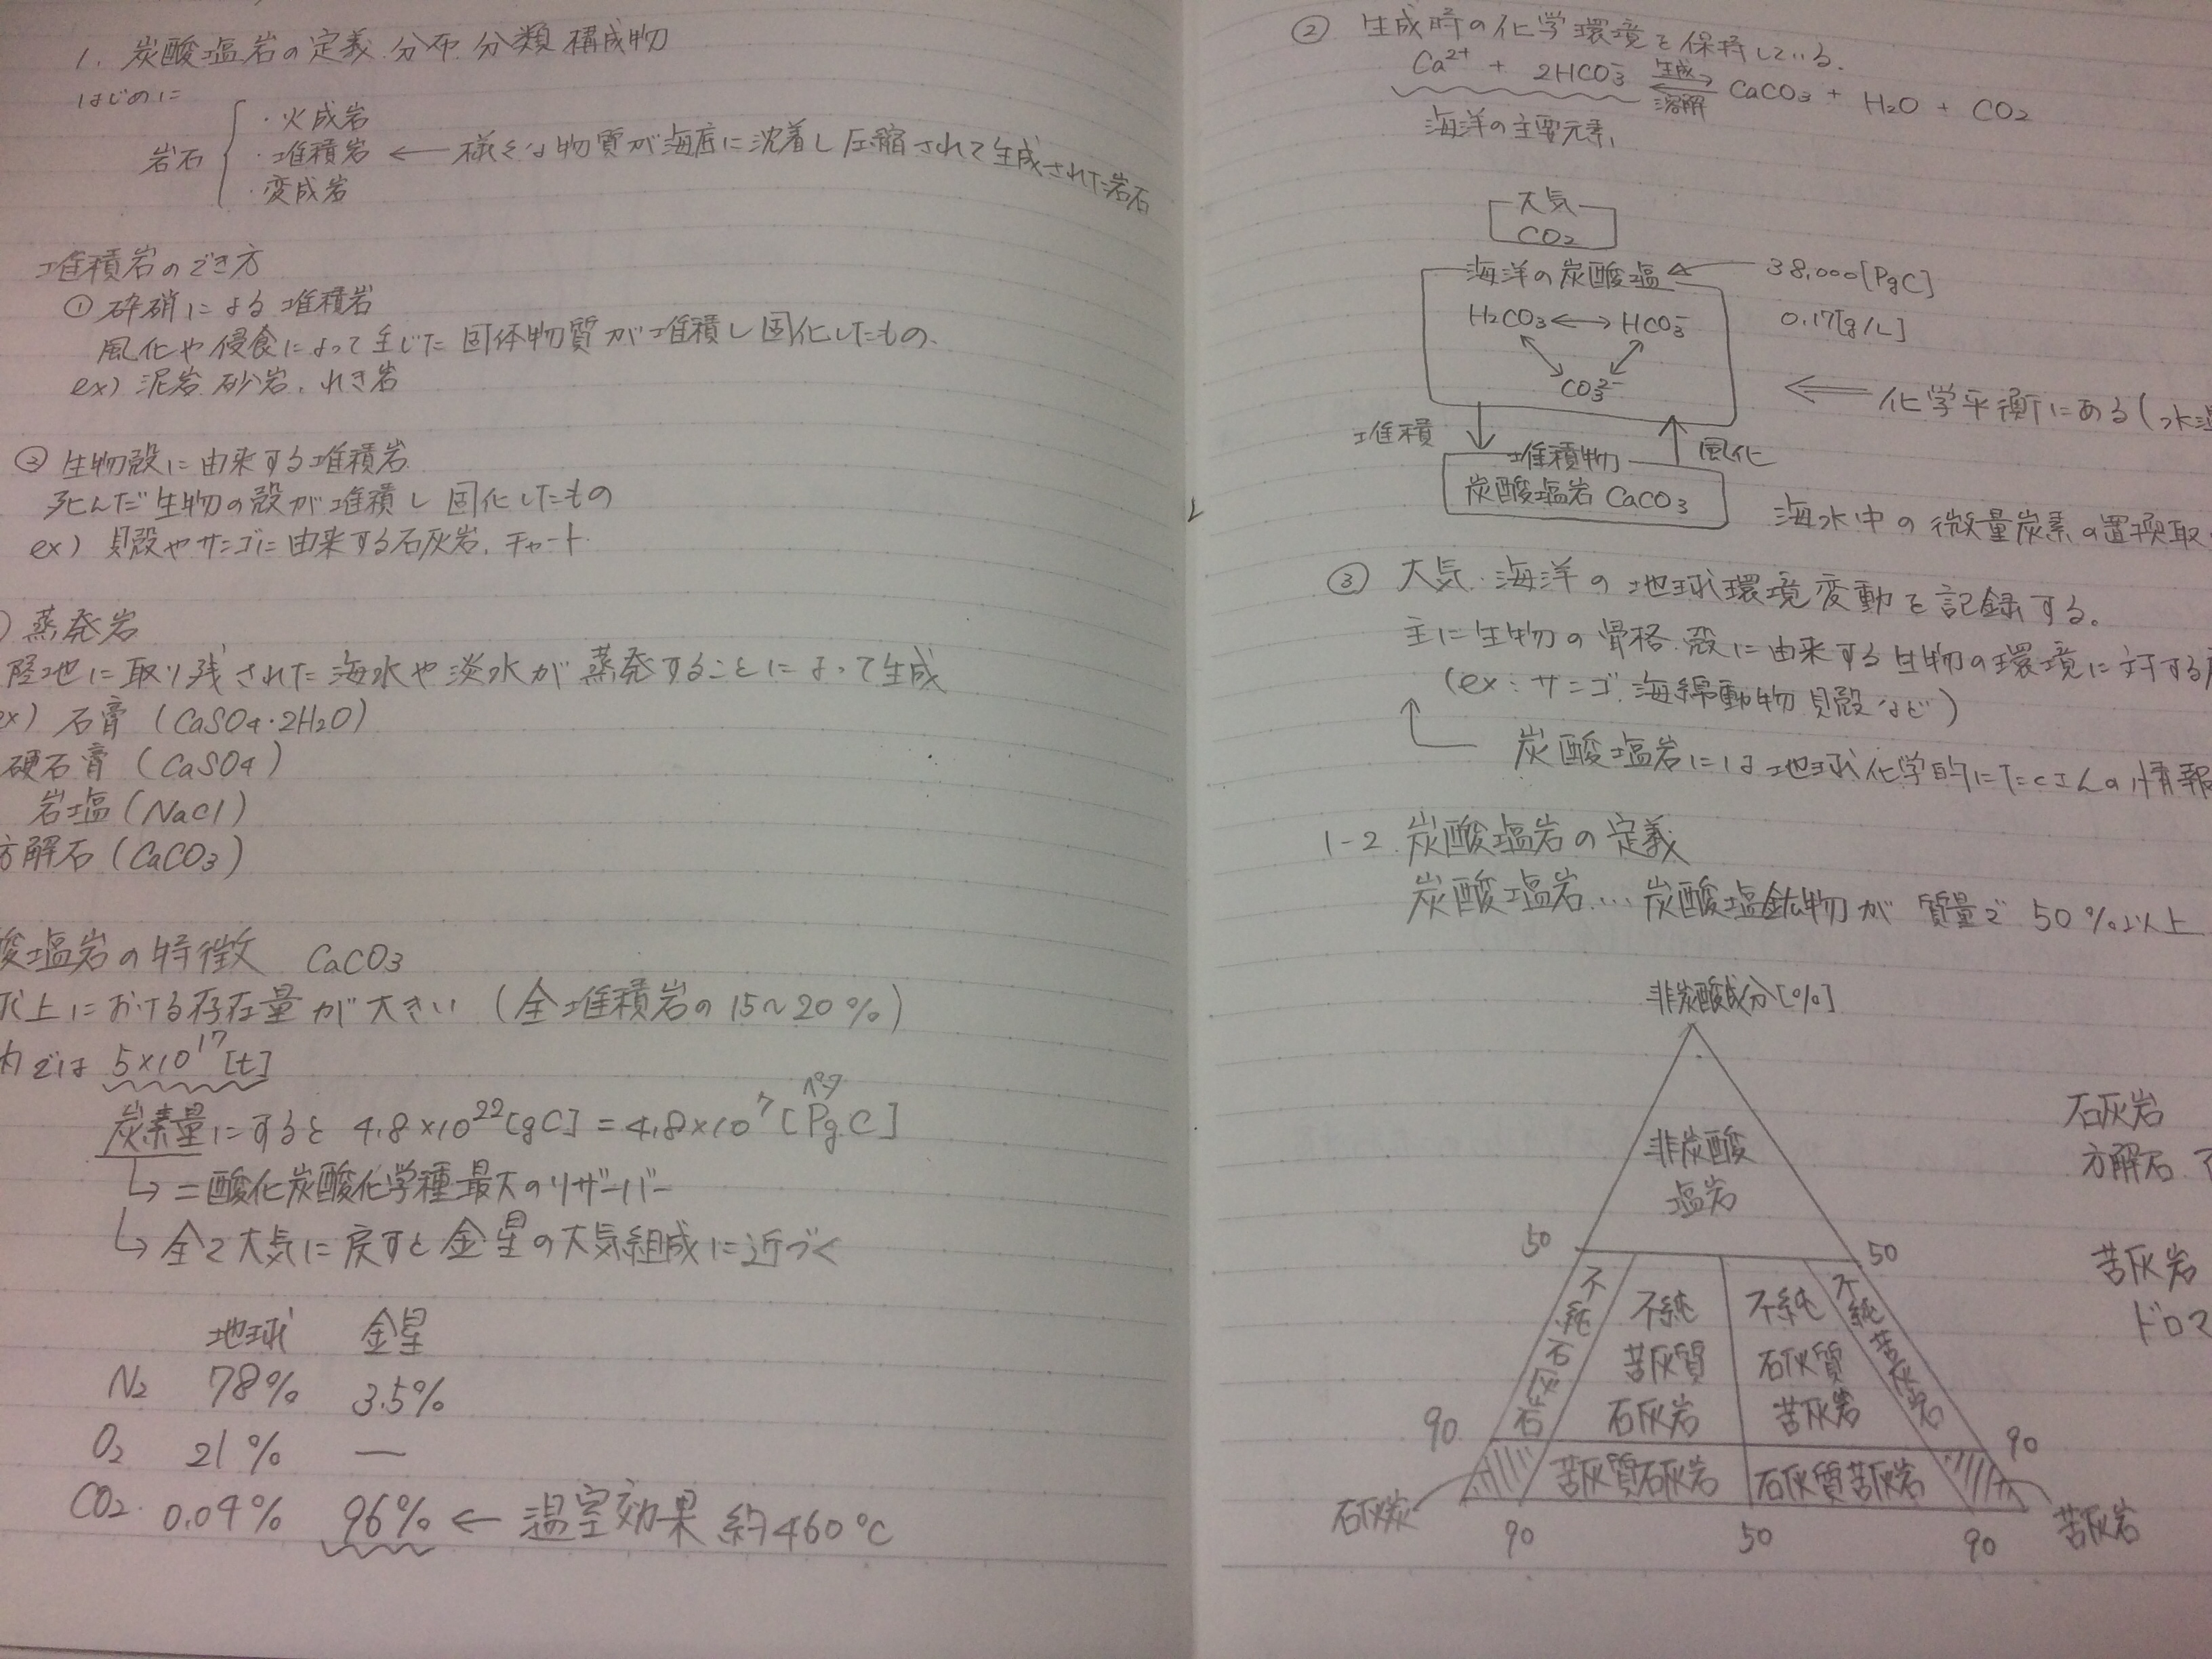 1. 炭酸塩岩の定義.分布.分類.構成物
はじめに
岩石
・火成岩
・堆積岩 ← 様々な物質が海底に沈着し圧縮されて生成された岩石
・変成岩
堆積岩のでき方
① 砕硝による堆積岩
風化や侵食によって生じた固体物質が堆積し固化したもの.
ex) 泥岩.砂岩.れき岩
② 生物殻に由来する堆積岩
死んだ生物の殻が堆積し固化したもの
ex) 貝殻やサンゴに由来する石灰岩.チャート
) 蒸発岩
陸地に取り残された海水や淡水が蒸発することによって生成
ex) 石膏 (CaSO4・2H2O)
硬石膏 (CaSO4)
岩塩 (NaCl)
方解石 (CaCO3)
酸塩岩の特徴 CaCO3
上における存在量が大きい (全堆積岩の15~20%)
内では 5×10^17 [t]
炭素量にすると 4.8×10^22 [gC] = 4.8×10^7 [PgC]
ペタ
↳ 二酸化炭酸化学種最大のリザーバー
↳ 全て大気に戻すと金星の大気組成に近づく
地球 金星
N2 78% 3.5%
O2 21% ―
CO2 0.04% 96% ← 温室効果 約460℃
② 生成時の化学環境を保持している.
Ca2+ + 2HCO3- ⇄ CaCO3 + H2O + CO2
生成
溶解
海洋の主要元素
大気
CO2
海洋の炭酸塩 ← 38,000[PgC]
0.17[g/L]
H2CO3 ↔ HCO3-
CO3 2-
⇐ 化学平衡にある(水温
堆積 ↓ ↑ 風化
堆積物
炭酸塩岩 CaCO3
海水中の微量炭素の置換取
③ 大気.海洋の地球環境変動を記録する。
主に生物の骨格.殻に由来する生物の環境に対する
(ex:サンゴ.海綿動物.貝殻など)
炭酸塩岩には地球化学的にたくさんの情報
1-2. 炭酸塩岩の定義
炭酸塩岩… 炭酸塩鉱物が質量で50%以上
非炭酸成分[%]
非炭酸
塩岩
50 50
不純石灰岩
不純
苦灰質
石灰岩
不純
石灰質
苦灰岩
不純苦灰岩
90 90
苦灰質石灰岩 石灰質苦灰岩
石灰炭
苦灰岩
90 50 90
石灰岩
方解石.ア
苦灰岩
ドロマ